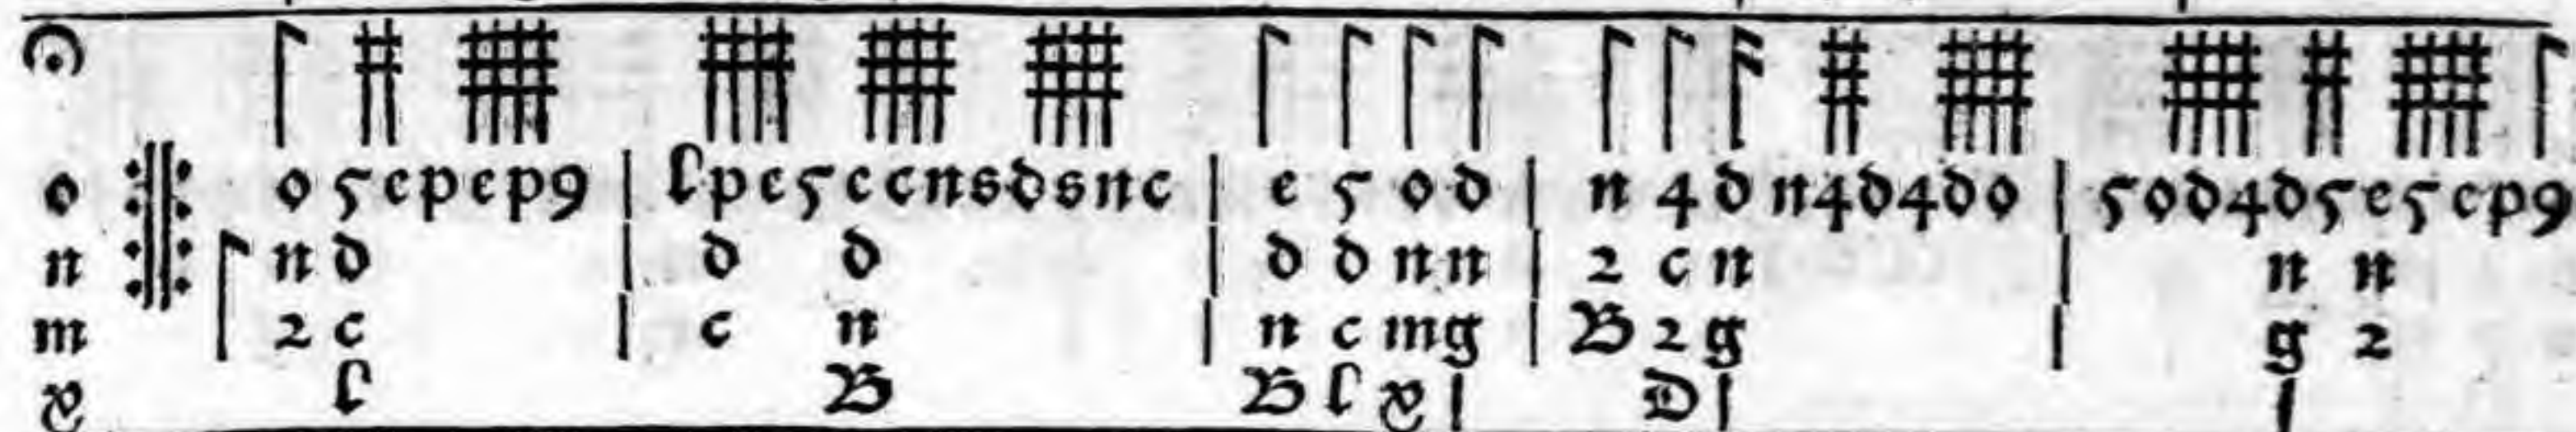 o 5 e p e p 9 | l p e 5 c c n s d s n c | e 5 o d | n 4 d n 4 d 4 d o | 5 o d 4 d 5 e 5 c p 9
n n d | d d | d d n n | 2 c n | n n
m 2 c | c n | n c m g | B 2 g | g 2
l B B l D